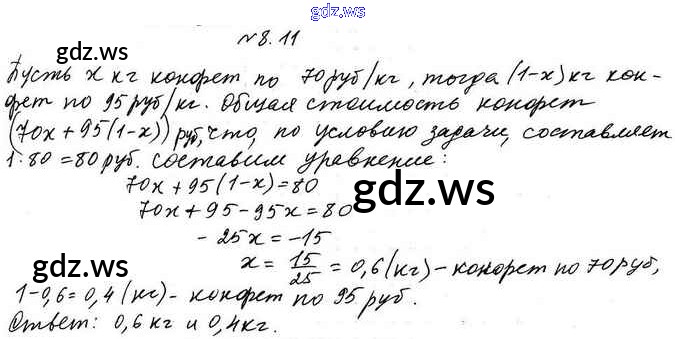 gdz.ws
№8.11
gdz.ws
Пусть x кг конфет по 70 руб/кг, тогда (1-x) кг кон-
фет по 95 руб/кг. Общая стоимость конфет
(70x + 95(1-x)) руб, что, по условию задачи, составляет
1·80 = 80 руб. составим уравнение:
70x + 95(1-x) = 80
gdz.ws
70x + 95 - 95x = 80
- 25x = -15
gdz.ws
x = 15/25 = 0,6 (кг) - конфет по 70 руб,
1-0,6 = 0,4 (кг) - конфет по 95 руб.
Ответ: 0,6 кг и 0,4 кг.
gdz.ws